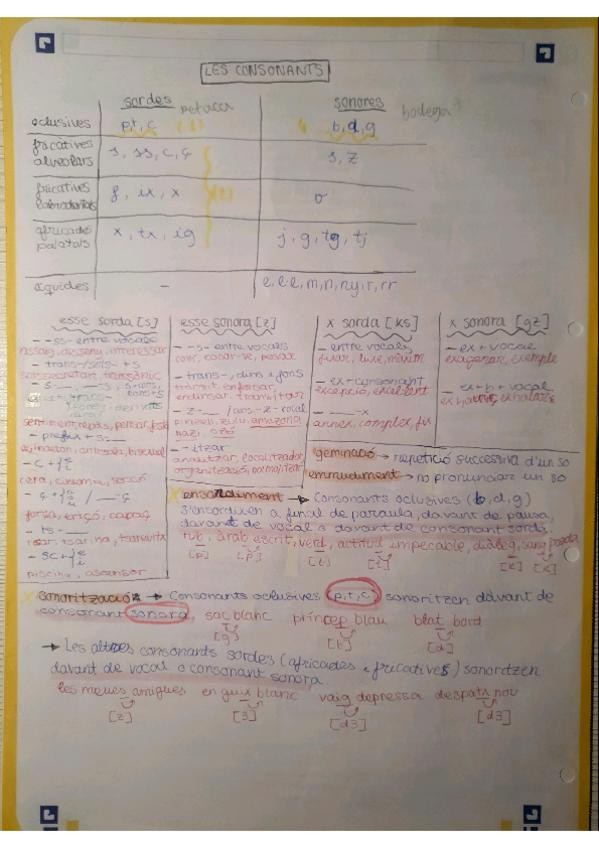 LES CONSONANTS
sordes petaca
sonores bodega
oclusives p, t, c b, d, g
fricatives alveolars s, ss, c, ç s, z
fricatives labiodentals f, ix, x v
africades palatals x, tx, ig j, g, tg, tj
líquides - l, l·l, m, n, ny, r, rr
esse sorda [s]
- -ss- entre vocals
assaig, disseny, interessar
- trans-/
- prefix + s-
- c + e i
cera, ciutat,
- ç + a o u / ___-ç
força, eriçó, capaç
- ts -
tsar, tsarina, tsarevitx
- sc + e i
piscina, ascensor
esse sonora [z]
- -s- entre vocals
- trans-, dins i fons
trànsit, enfonsar,
endinsar, transitar
- z-
pinzell, zulu, amazona
nazi, ozó
- -itzar
analitzar, localitzador,
organització, normalitzar
x sorda [ks]
- entre vocals
fixar, luxe, màxim
- ex + consonant
excepció, excel·lent
- ___-x
annex, complex, fix
x sonora [gz]
- ex + vocal
exagerar, exemple
- ex + h + vocal
exhalar
geminació → repetició successiva d'un so
emmudiment → no pronunciar un so
ensordiment → Consonants oclusives (b, d, g)
s'ensordeixen a final de paraula, davant de pausa,
davant de vocal o davant de consonant sorda.
tub, àrab escrit, verd, actitud impecable, diàleg, sang
[p] [p] [t] [t] [k] [k]
sonorització → Consonants oclusives (p, t, c) sonoritzen davant de
consonant sonora, sac blanc príncep blau blat bord
[g] [b] [d]
→ Les altres consonants sordes (africades i fricatives) sonoritzen
davant de vocal o consonant sonora.
les meues amigues en guix blanc vaig depressa despatx nou
[z] [3] [d3] [d3]